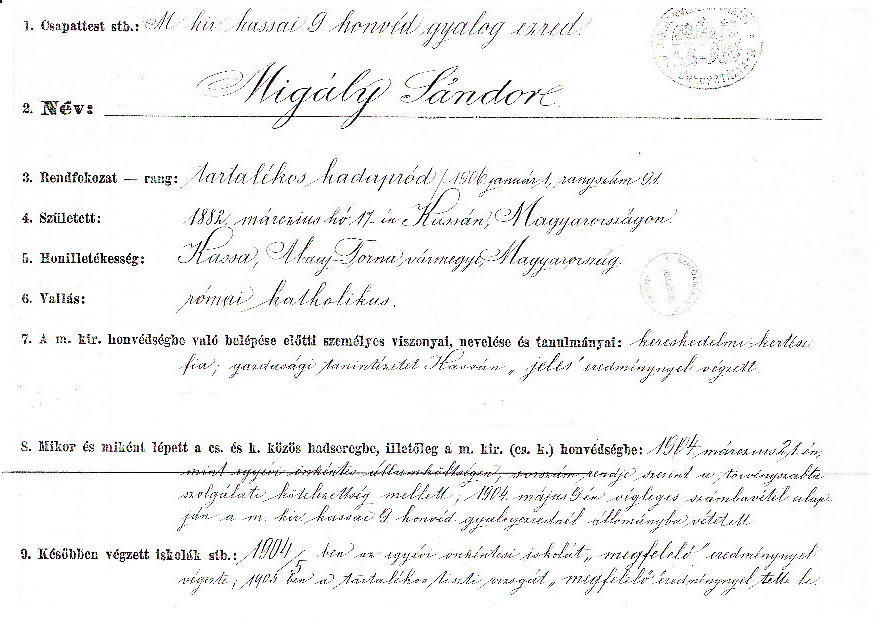 1. Csapattest stb.: M kir kassai 9 honvéd gyalog ezred.
2. Név: Migály Sándor
3. Rendfokozat — rang: tartalékos hadapród / 1906 január 1, rangszám 91.
4. Született: 1882. márczius hó 17-én Kassán, Magyarországon.
5. Honilletékesség: Kassa, Abauj-Torna, vármegye, Magyarország.
6. Vallás: római katholikus.
7. A m. kir. honvédségbe való belépése előtti személyes viszonyai, nevelése és tanulmányai: kereskedelmi kertész
fia; gazdasági tanintézetet Kassán „jeles" eredménynyel végzett.
8. Mikor és miként lépett a cs. és k. közös hadseregbe, illetőleg a m. kir. (cs. k.) honvédségbe: 1904, márczius 21 én,
mint egyévi önkéntes államköltségen, sorszám rendje szerint a törvényszabta
szolgálati kötelezettség mellett; 1904 május 9 én végleges számbavétel alap-
ján a m. kir kassai 9 honvéd gyalogezrednél állományba vétetett
9. Későbben végzett iskolák stb.: 1904/5 ben az egyévi önkéntesi iskolát „megfelelő" eredménynyel
végezte; 1905 ben a tartalékos tiszti vizsgát „megfelelő" eredménynyel tette le.